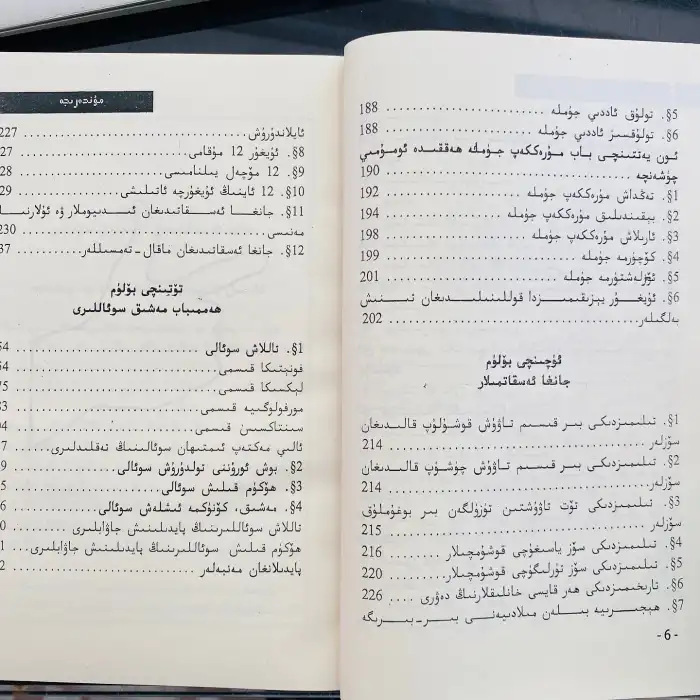 §5. تولۇق ئاددىي جۈملە ........ 188
§6. تولۇقسىز ئاددىي جۈملە ........ 188
ئون يەتتىنچى باب مۇرەككەپ جۈملە ھەققىدە ئومۇمىي
چۈشەنچە ........ 190
§1. تەڭداش مۇرەككەپ جۈملە ........ 192
§2. بېقىندىلىق مۇرەككەپ جۈملە ........ 194
§3. ئارىلاش مۇرەككەپ جۈملە ........ 198
§4. كۆچۈرمە جۈملە ........ 199
§5. ئۆزلەشتۈرمە جۈملە ........ 201
§6. ئۇيغۇر يېزىقىمىزدا قوللىنىلىدىغان تىنىش
بەلگىلەر ........ 202
ئۈچىنچى بۆلۈم
جانغا ئەسقاتمىلار
§1. تىلىمىزدىكى بىر قىسىم تاۋۇش قوشۇلۇپ قالىدىغان
سۆزلەر ........ 214
§2. تىلىمىزدىكى بىر قىسىم تاۋۇش چۈشۈپ قالىدىغان
سۆزلەر ........ 214
§3. تىلىمىزدىكى تۆت تاۋۇشتىن تۈزۈلگەن بىر بوغۇملۇق
سۆزلەر ........ 215
§4. تىلىمىزدىكى سۆز ياسىغۇچى قوشۇمچىلار ........ 216
§5. تىلىمىزدىكى سۆز تۈرلىگۈچى قوشۇمچىلار ........ 220
§6. تارىخىمىزدىكى ھەر قايسى خانلىقلارنىڭ دەۋرى .... 226
§7. ھىجىرىيە بىلەن مىلادىيەنى بىر-بىرىگە
- 6 -
مۇندەرىجە
ئايلاندۇرۇش ........ 227
§8. ئۇيغۇر 12 مۇقامى ........ 27
§9. 12 مۆچەل يىلنامىسى ........ 28
§10. 12 ئاينىڭ ئۇيغۇرچە ئاتىلىشى ........ 29
§11. جانغا ئەسقاتىدىغان ئىدىيوملار ۋە ئۇلارنىڭ
مەنىسى ........ 230
§12. جانغا ئەسقاتىدىغان ماقال-تەمسىللەر ........ 37
تۆتىنچى بۆلۈم
ھەممىباب مەشىق سوئاللىرى
§1. تاللاش سوئالى ........ 54
فونېتىكا قىسمى ........ 54
لېكسىكا قىسمى ........ 75
مورفولوگىيە قىسمى ........ 83
سىنتاكسىس قىسمى ........ 04
ئالىي مەكتەپ ئىمتىھان سوئالىنىڭ تەقلىدلىرى ........ 7
§2. بوش ئورۇننى تولدۇرۇش سوئالى ........ 9
§3. ھۆكۈم قىلىش سوئالى ........ 5
§4. مەشىق، كۆنۈكمە ئىشلەش سوئالى ........ 6
تاللاش سوئاللىرىنىڭ پايدىلىنىش جاۋابلىرى ........ 0
ھۆكۈم قىلىش سوئاللىرىنىڭ پايدىلىنىش جاۋابلىرى .... 1
پايدىلانغان مەنبەلەر ........ 2